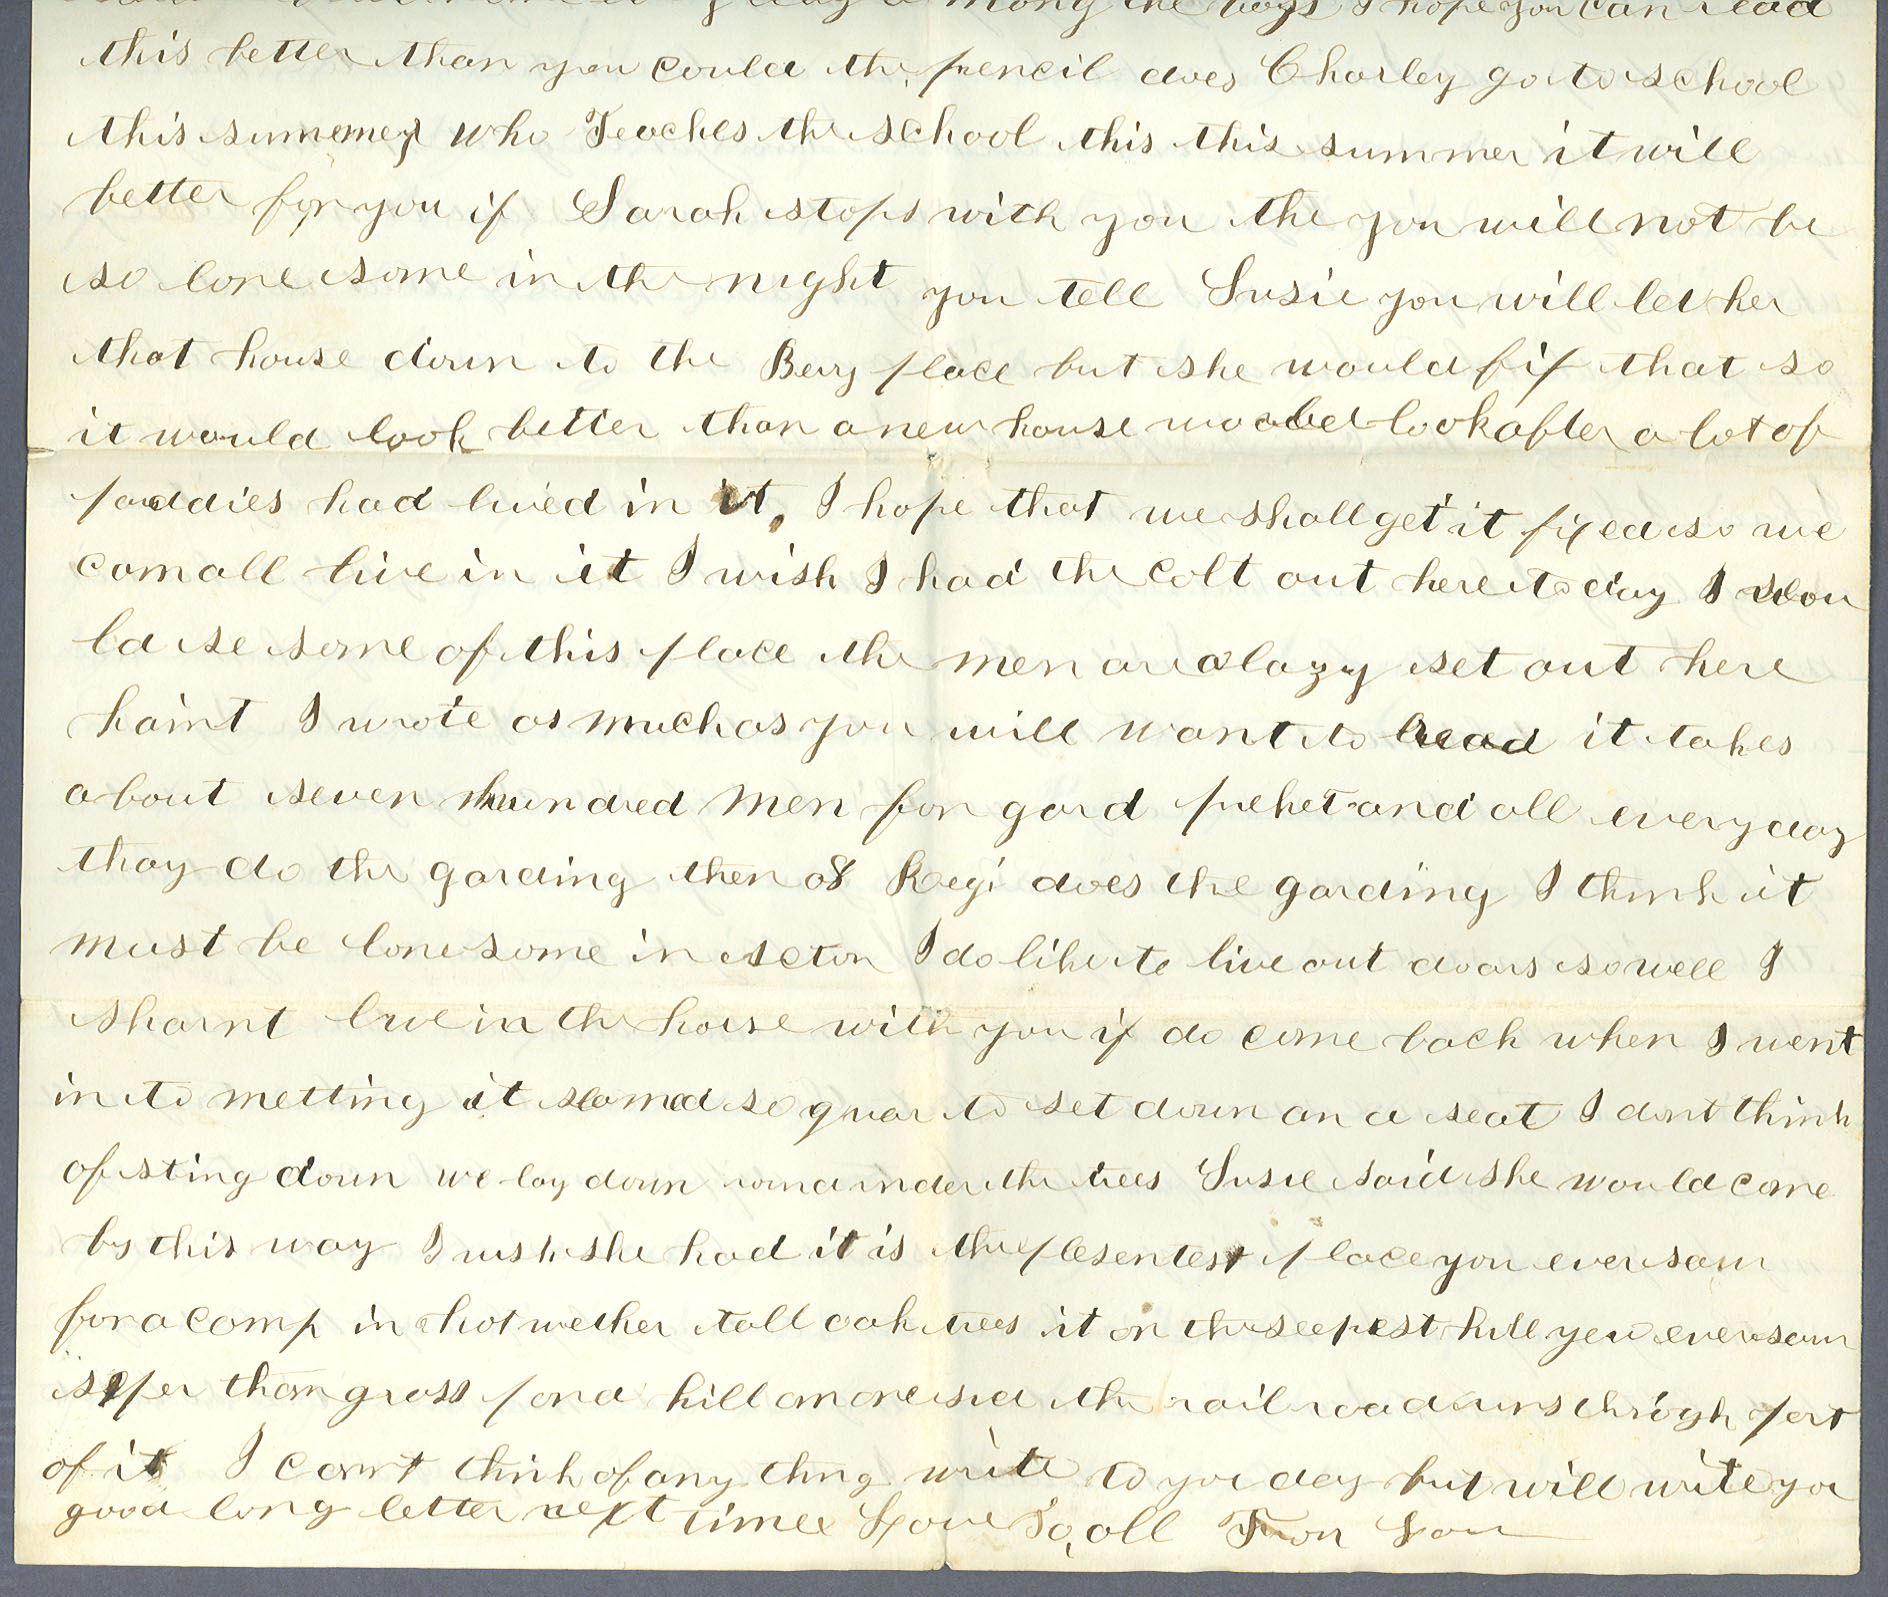 a mong the boys I hope you can read
this better than you could the pencil does Charley go to school
this summer who Teaches the school this this summer it will
better for you if Sarah stops with you the you will not be
so lone some in the night you tell Susie you will let her
that house down to the Berry place but she would fix that so
it would look better than a new house would look after a lot of
paddies had lived in it, I hope that we shall get it fixed so we
can all live in it I wish I had the colt out here to day I wou
ld se some of this place the men are a lazy set out here
haint I wrote as much as you will want to read it takes
a bout seven hundred men for gard picket and all every day
thay do the garding then 08 Regi does the garding I think it
must be lone some in acton I do like to live out doors so well I
sharnt live in the house with you if do come back when I went
in to metting it seamed so quar to set down on a seat I dont think
of sting down we lay down round under the trees Susie said she would come
by this way I wish she had it is the plesentest place you ever saw
for a camp in hot wether tall oak trees it on the seepest hill you ever saw
steper than grass pond hill on one sid the rail road runs throgh part
of it I cant think of any thing write to you day but will write you
good long letter next time Love To, all From Lou